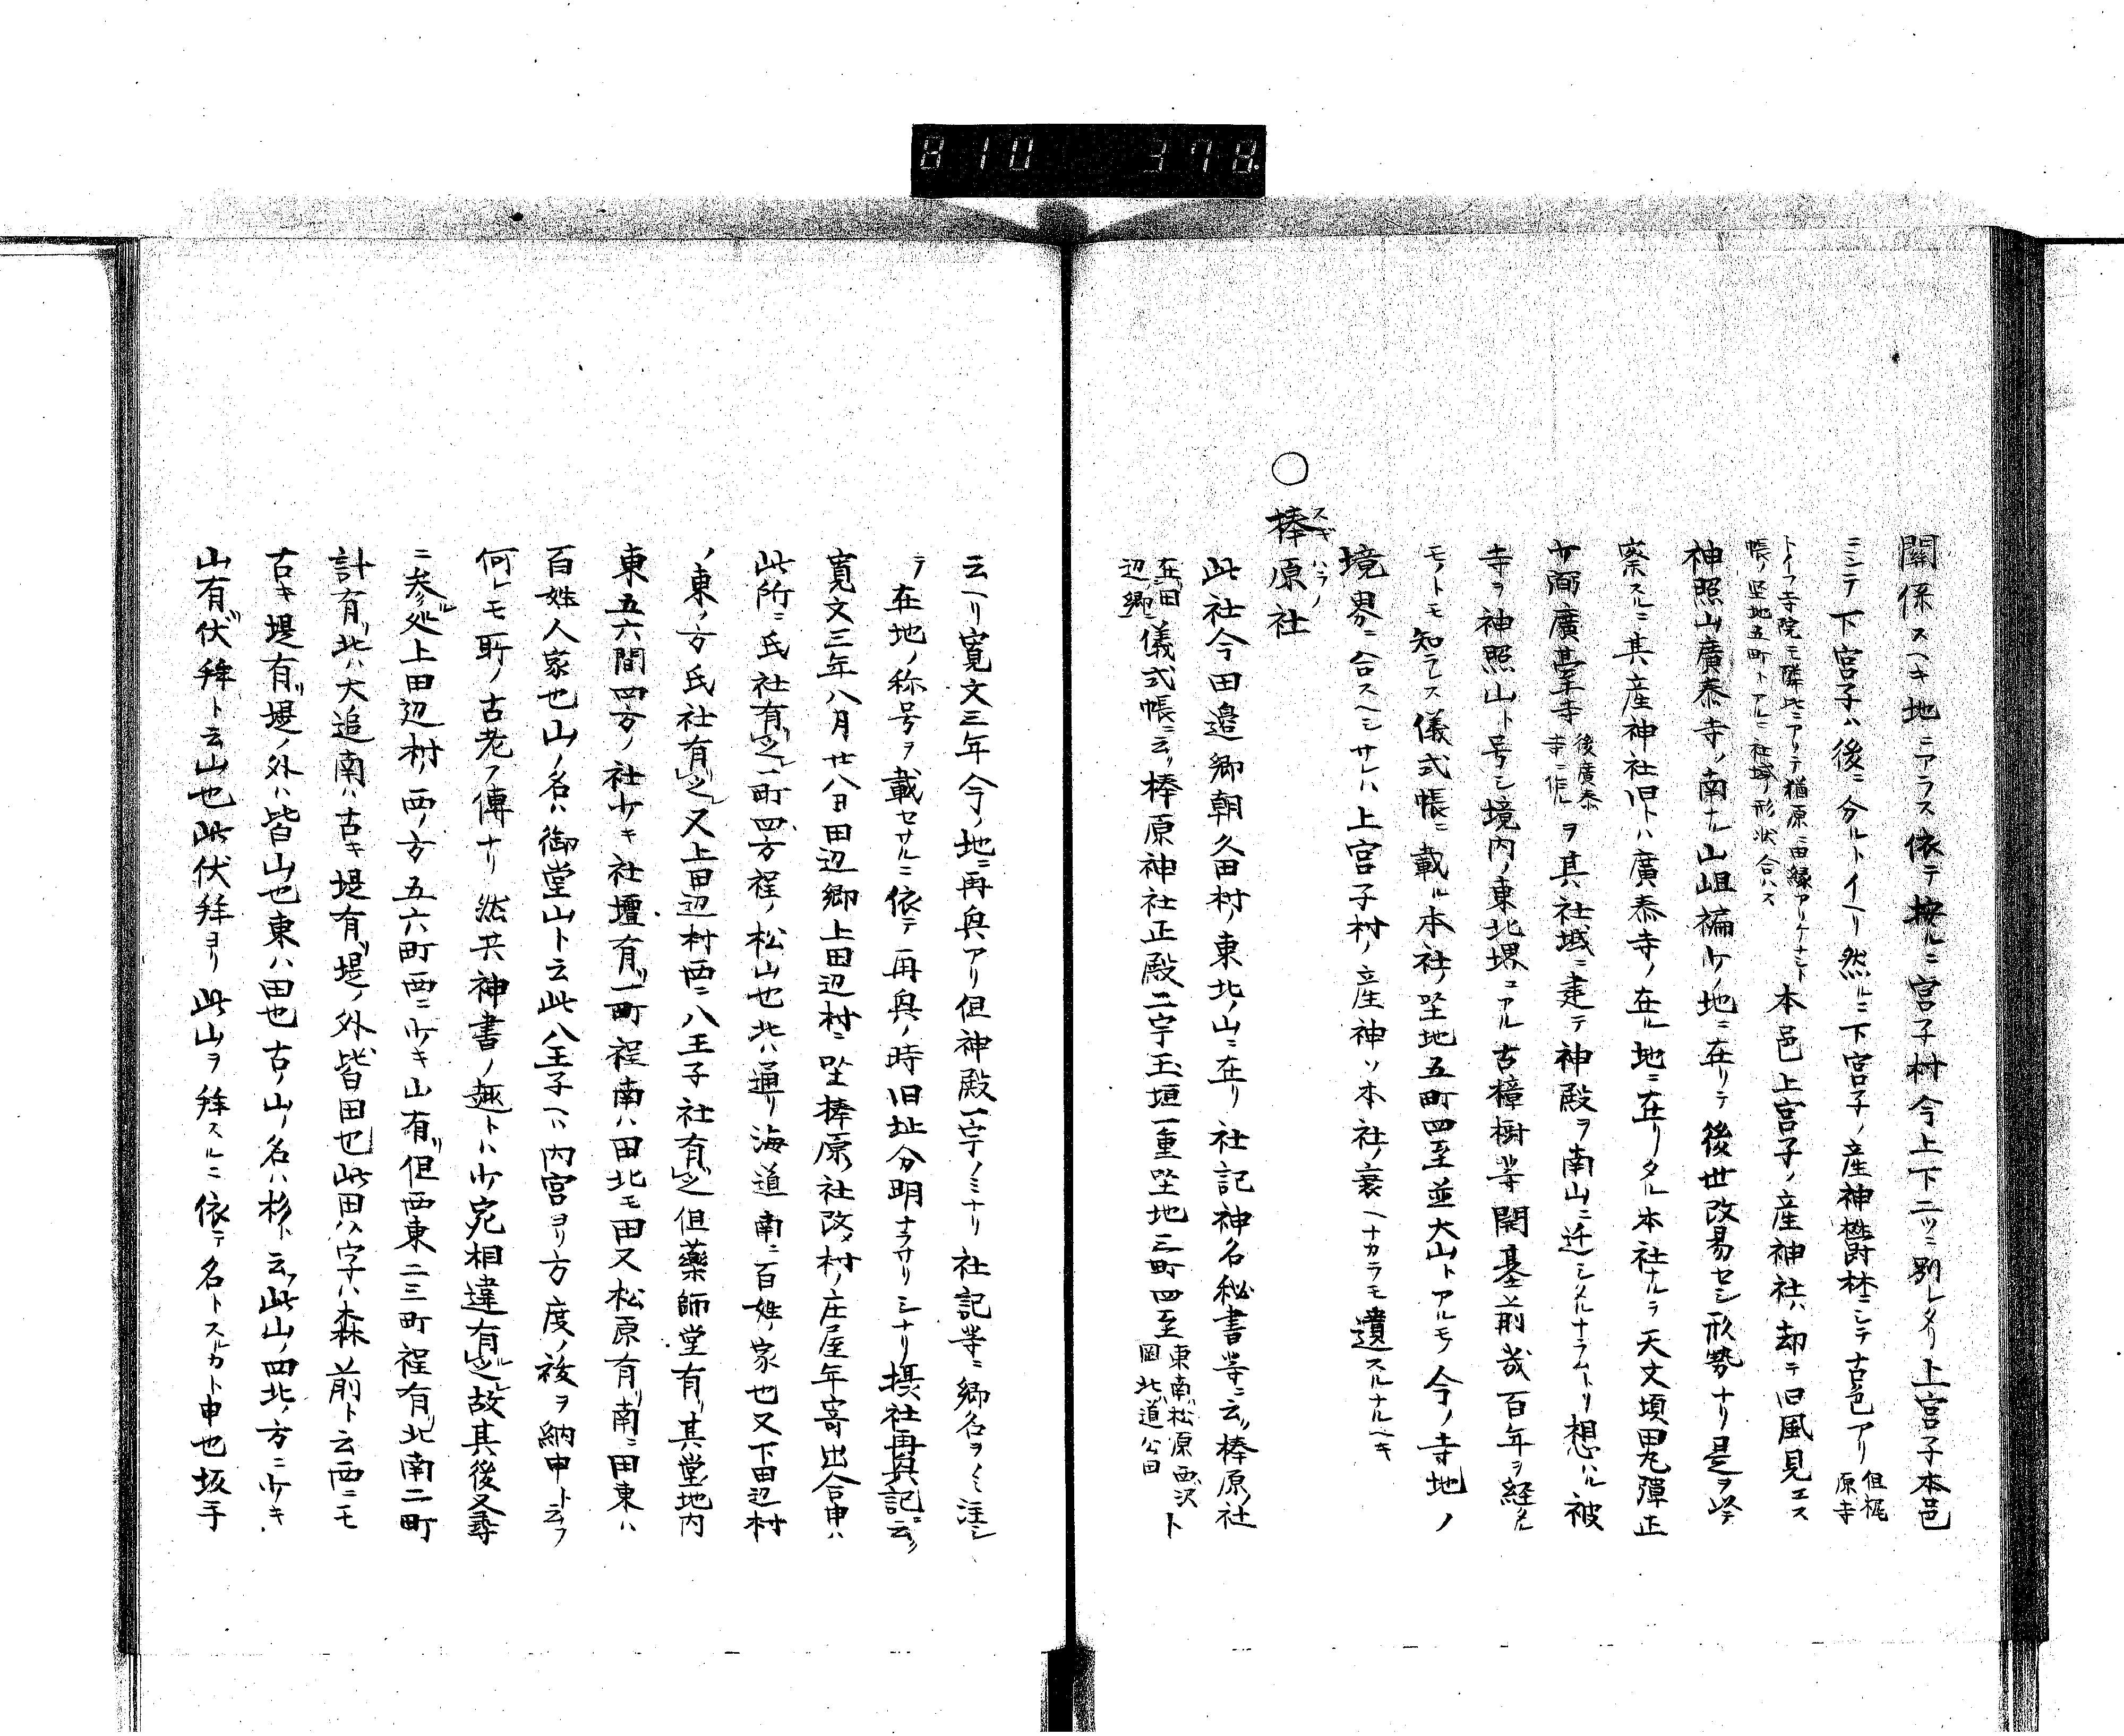 810 378
關係スヘキ地ニアラス依テ按ルニ宮子村今上下二ツニ別レタリ上宮子本邑
ニシテ下宮子ハ後ニ分ルトイヘリ然ルニ下宮子ノ産神欝林ニシテ古邑アリ但梶原寺
トイフ寺院モ隣北ニアリテ楢原ニ由縁アリケナント
帳ノ坐地五町トアルニ社域ノ形状合ハス
本邑上宮子ノ産神社ハ却テ旧風見エス
神照山廣泰寺ノ南ナル山岨褊少ノ地ニ在リテ後世改易セシ形勢ナリ是ヲ以テ
察スルニ其産神社旧トハ廣泰寺ノ在ル地ニ在リタル本社ナルヲ天文頃田丸彈正
少弼廣臺寺後廣泰寺ニ作ルヲ其社域ニ建テ神殿ヲ南山ニ迁シメルナラムトソ想ハル被
寺ヲ神照山ト号シ境内ノ東北堺ニアル古樟樹等開基前哉百年ヲ経タル
モノトモ知ラレス儀式帳ニ載ル本社ノ坐地五町四至並大山トアルモ今ノ寺地ノ
境界ニ合スヘシサレハ上宮子村ノ産神ソ本社ノ衰ヘナカラモ遺スルナルヘキ
○棒原社
スギハラノ
此社今田邉郷朝久田村ノ東北ノ山ニ在リ社記神名秘書等ニ云ク棒原ノ社
在田辺郷儀式帳ニ云ク棒原神社正殿二宇玉垣一重坐地三町四至東南松原西沢岡北道公田ト
云ヘリ寛文三年今ノ地ニ再興アリ但神殿一宇ノミナリ社記等ニ郷名ヲノミ注シ
テ在地ノ称号ヲ載セサルニ依テ再興ノ時旧址分明ナラサリシナリ摂社再興記ニ云ク
寛文三年八月廿八日田辺郷上田辺村ニ坐棒原ノ社改メ村ノ庄屋年寄出合申ハ
此所ニ氏社有之一町四方程ノ松山也北ハ通リ海道南ニ百姓ノ家也又下田辺村
ノ東ノ方氏社有之又上田辺村西ニ八王子社有之但藥師堂有リ其堂地内
東五六間四方ノ社少キ社壇有リ一町程南ハ田北モ田又松原有リ南ニ田東ハ
百姓人家也山ノ名ハ御堂山ト云此八王子ヘハ内宮ヨリ方度ノ祓ヲ納申ト云フ
何レモ所ノ古老フ傳ナリ然共神書ノ趣トハ少宛相違有之故其後又尋
ニ参ル処上田辺村ノ西ノ方五六町西ニ少キ山有リ但西東二三町程有リ北南二町
計有リ北ハ大追南ハ古キ堤有リ堤ノ外皆田也此田ハ字ハ森前ト云西ニモ
古キ堤有リ堤ノ外ハ皆山也東ハ田也古ノ山ノ名ハ杉ト云此山ノ四北ノ方ニ少キ
山有リ伏拜ト云山也此伏拜ヨリ此山ヲ拜スルニ依テ名トスルカト申也坂手